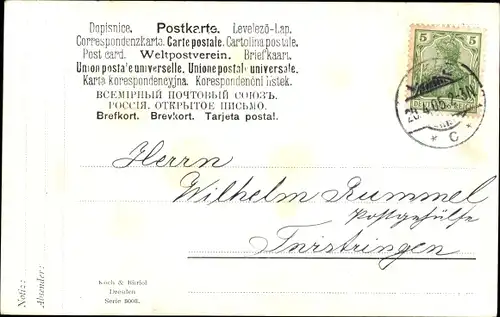 Dopisnice. Postkarte. Levelező-Lap.
Correspondenzkarte. Carte postale. Cartolina postale.
Post card. Weltpostverein. Briefkaart.
Union postale universelle. Unione postale universale.
Karta korespondencyjna. Korespondenční lístek.
ВСЕМІРНЫЙ ПОЧТОВЫЙ СОЮЗЪ.
РОССІЯ. ОТКРЫТОЕ ПИСЬМО.
Brefkort. Brevkort. Tarjeta postal.
5 5
C
Herrn
Wilhelm Rummel
Postgehülfe
Koch & Bitriol
Dresden
Serie 8008.
Notiz:
Absender: